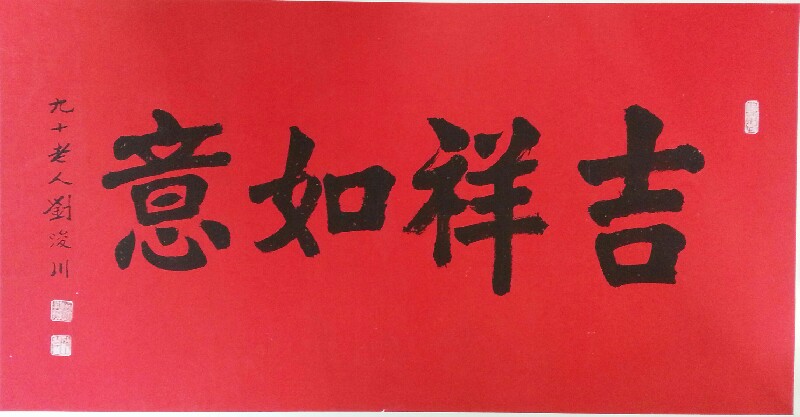 吉祥如意
九十老人劉浚川